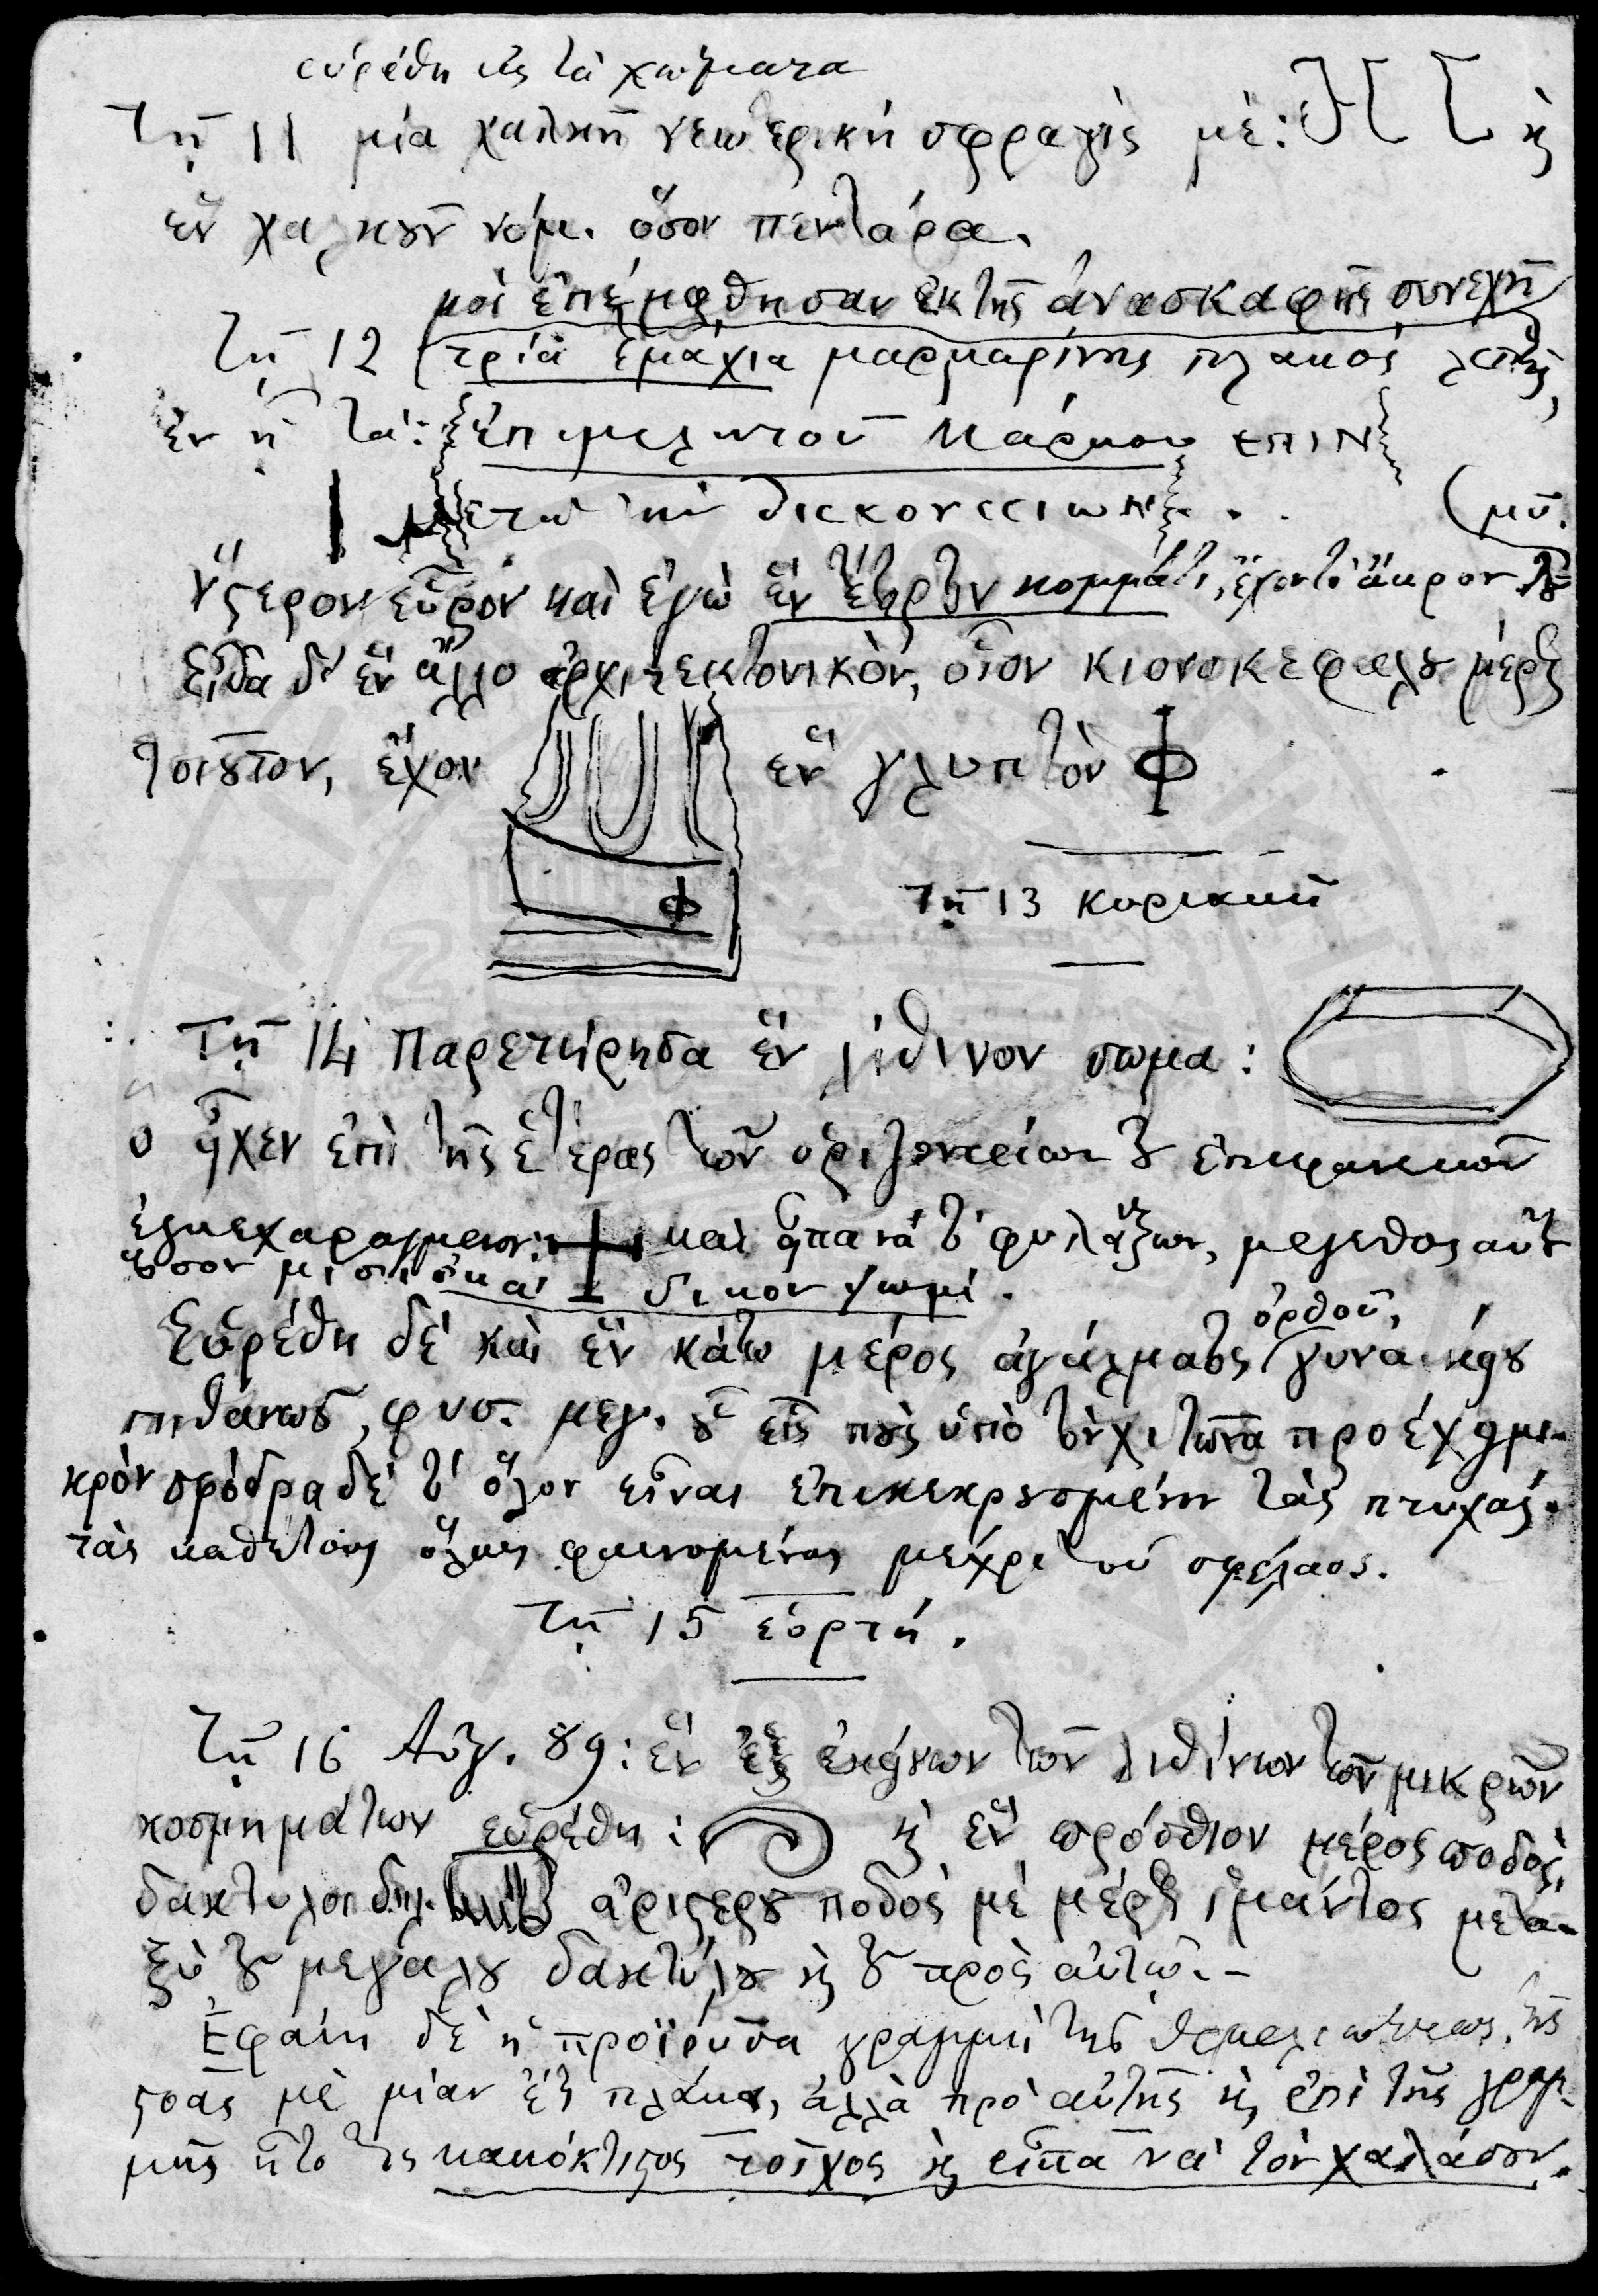 εὑρέθη εἰς τὰ χώματα
Τῇ 11 μία χαλκῆ νεωτερικὴ σφραγὶς μὲ: Η Σ κ
ἓν χαλκοῦν νόμ. ὅσον πεντάρα.
μοὶ ἐπέμφθησαν ἐκ τῆς ἀνασκαφῆς συνεχῆ
Τῇ 12 τρία τμάχια μαρμαρίνης πλακὸς
ἐν ᾗ τά: ἐπιμελητοῦ Μάρκου ΕΠΙΝ
διεκονεσιων . . (μῦ.
ὕστερον εὗρον καὶ ἐγὼ ἓν τέταρτον κομμάτι, ἔχον τὸ ἄκρον
Εἶδα δὲ ἓν ἄλλο ἀρχιτεκτονικὸν, οἷον κιονοκεφάλου μέρος
τοιοῦτον, ἔχον ἓν γλυπτὸν Φ
Φ
Τῇ 13 Κυριακῇ
Τῇ 14 Παρετήρησα ἓν λίθινον σῶμα:
ὃ εἶχεν ἐπὶ τῆς ἑτέρας τῶν ὁριζοντείων του ἐπιφανειῶν
ἐγκεχαραγμένον: + καὶ εἶπα νὰ τὸ φυλάξων, μέγεθος αὐτοῦ
ὅσον ψωμί.
Εὑρέθη δὲ καὶ ἓν κάτω μέρος ἀγάλματος γυναικείου
ὀρθοῦ,
πιθανῶς, φυσ. μεγ. οὗ εἷς ποῦς ὑπὸ τὸν χιτῶνα προέχει μι-
κρὸν σφόδρα δὲ τὸ ὅλον εἶναι ἐπικεκρουσμένον τὰς πτυχάς.
τὰς καθέτους ὅλως φαινομένας μέχρι τοῦ σφέλαος.
Τῇ 15 ἑορτή.
Τῇ 16 Αὔγ. 89: ἓν ἐξ ἐκείνων τῶν λιθίνων τῶν μικρῶν
κοσμημάτων εὑρέθη: κ ἓν πρόσθιον μέρος ποδὸς,
δάκτυλοι δηλ. ἀριστεροῦ ποδὸς μὲ μέρος ἱμάντος μετα-
ξὺ τοῦ μεγάλου δακτύλου κ τοῦ πρὸς αὐτῷ. -
Ἐφάνη δὲ ἡ προϊοῦσα γραμμὴ τῆς θεμελιώσεως τῆς
στοᾶς μὲ μίαν ἔτι πλάκα, ἀλλὰ πρὸ αὐτῆς κ ἐπὶ τῆς γραμ-
μῆς ἦτο τις κακόκτιστος τοῖχος κ εἶπα νὰ τὸν χαλάσουν.